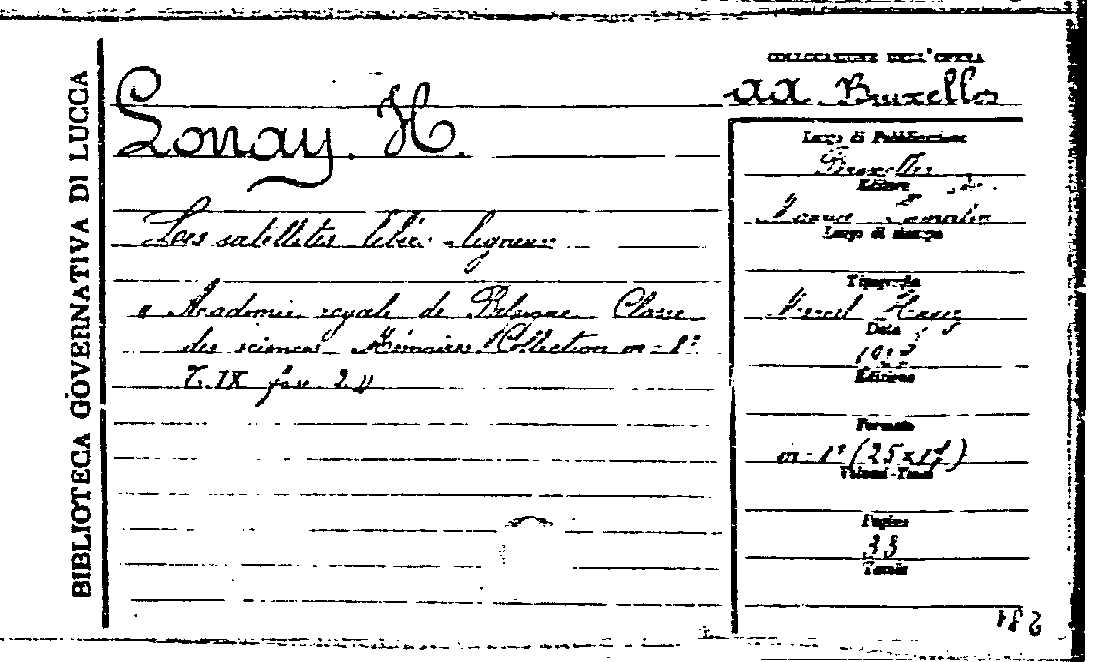 BIBLIOTECA GOVERNATIVA DI LUCCA
Lonay. H.
Les satellites libéro-ligneux
" Académie royale de Belgique Classe
des sciences Mémoires Collection in-8°
T. IX fasc 2 "
COLLOCAZIONE DELL'OPERA
AA. Bruxelles
Luogo di Pubblicazione
Bruxelles
Editore
Luogo di stampa
Tipografia
Marcel Hayez
Data
Edizione
Formato
in-8° (25x17)
Volumi-Tomi
Pagine
33
Tavole